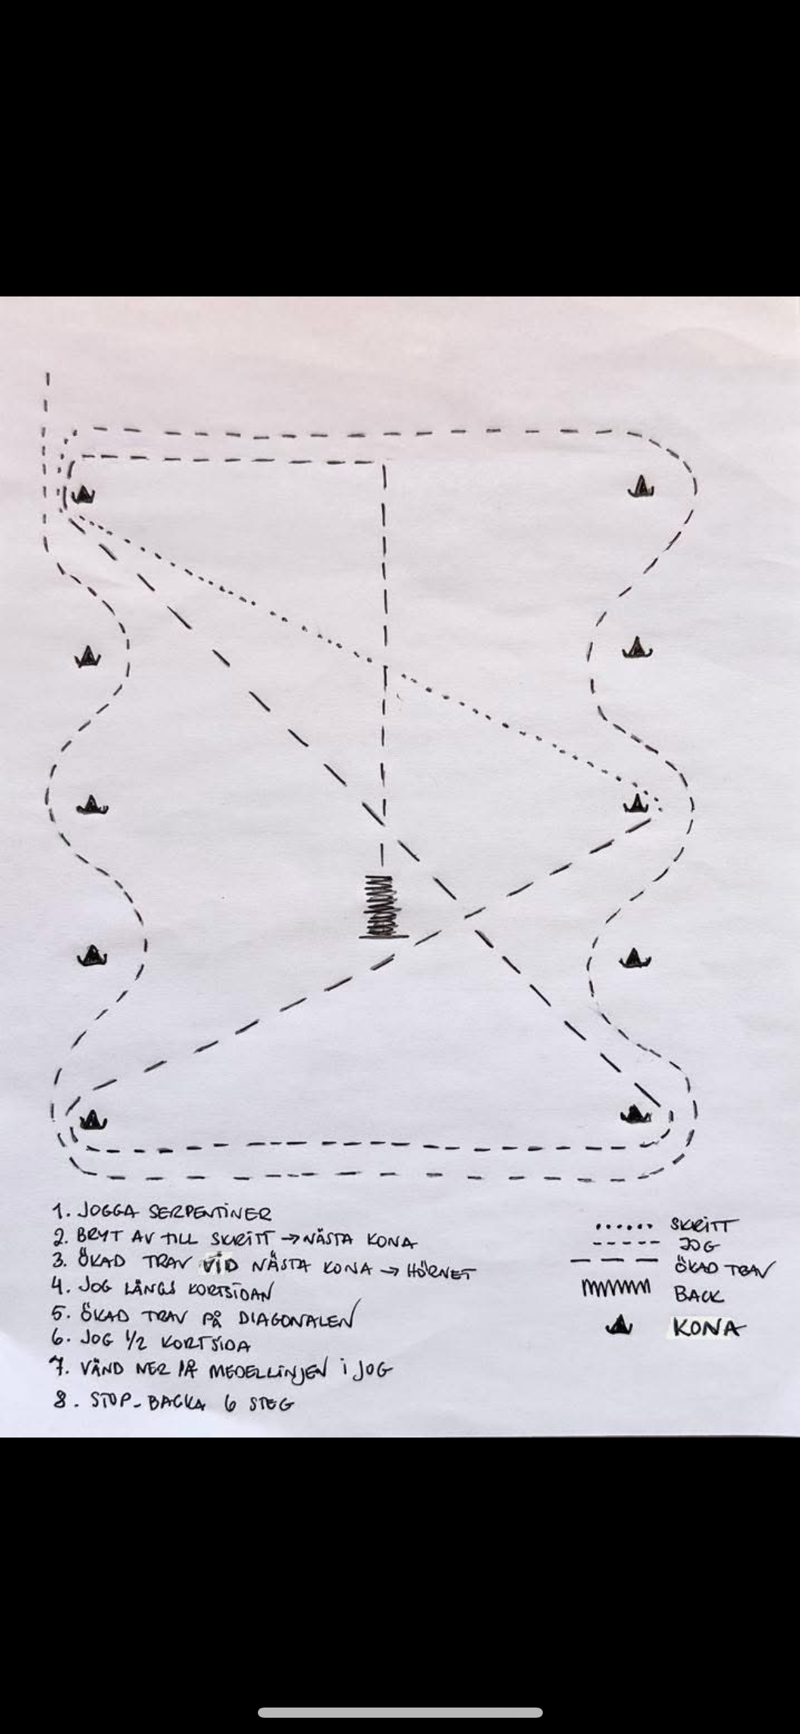 1. JOGGA SERPENTINER
2. BRYT AV TILL SKRITT → NÄSTA KONA
3. ÖKAD TRAV VID NÄSTA KONA → HÖRNET
4. JOG LÅNGS KORTSIDAN
5. ÖKAD TRAV PÅ DIAGONALEN
6. JOG 1/2 KORTSIDA
7. VÄND NER PÅ MEDELLINJEN I JOG
8. STOP - BACKA 6 STEG
SKRITT
JOG
ÖKAD TRAV
BACK
KONA